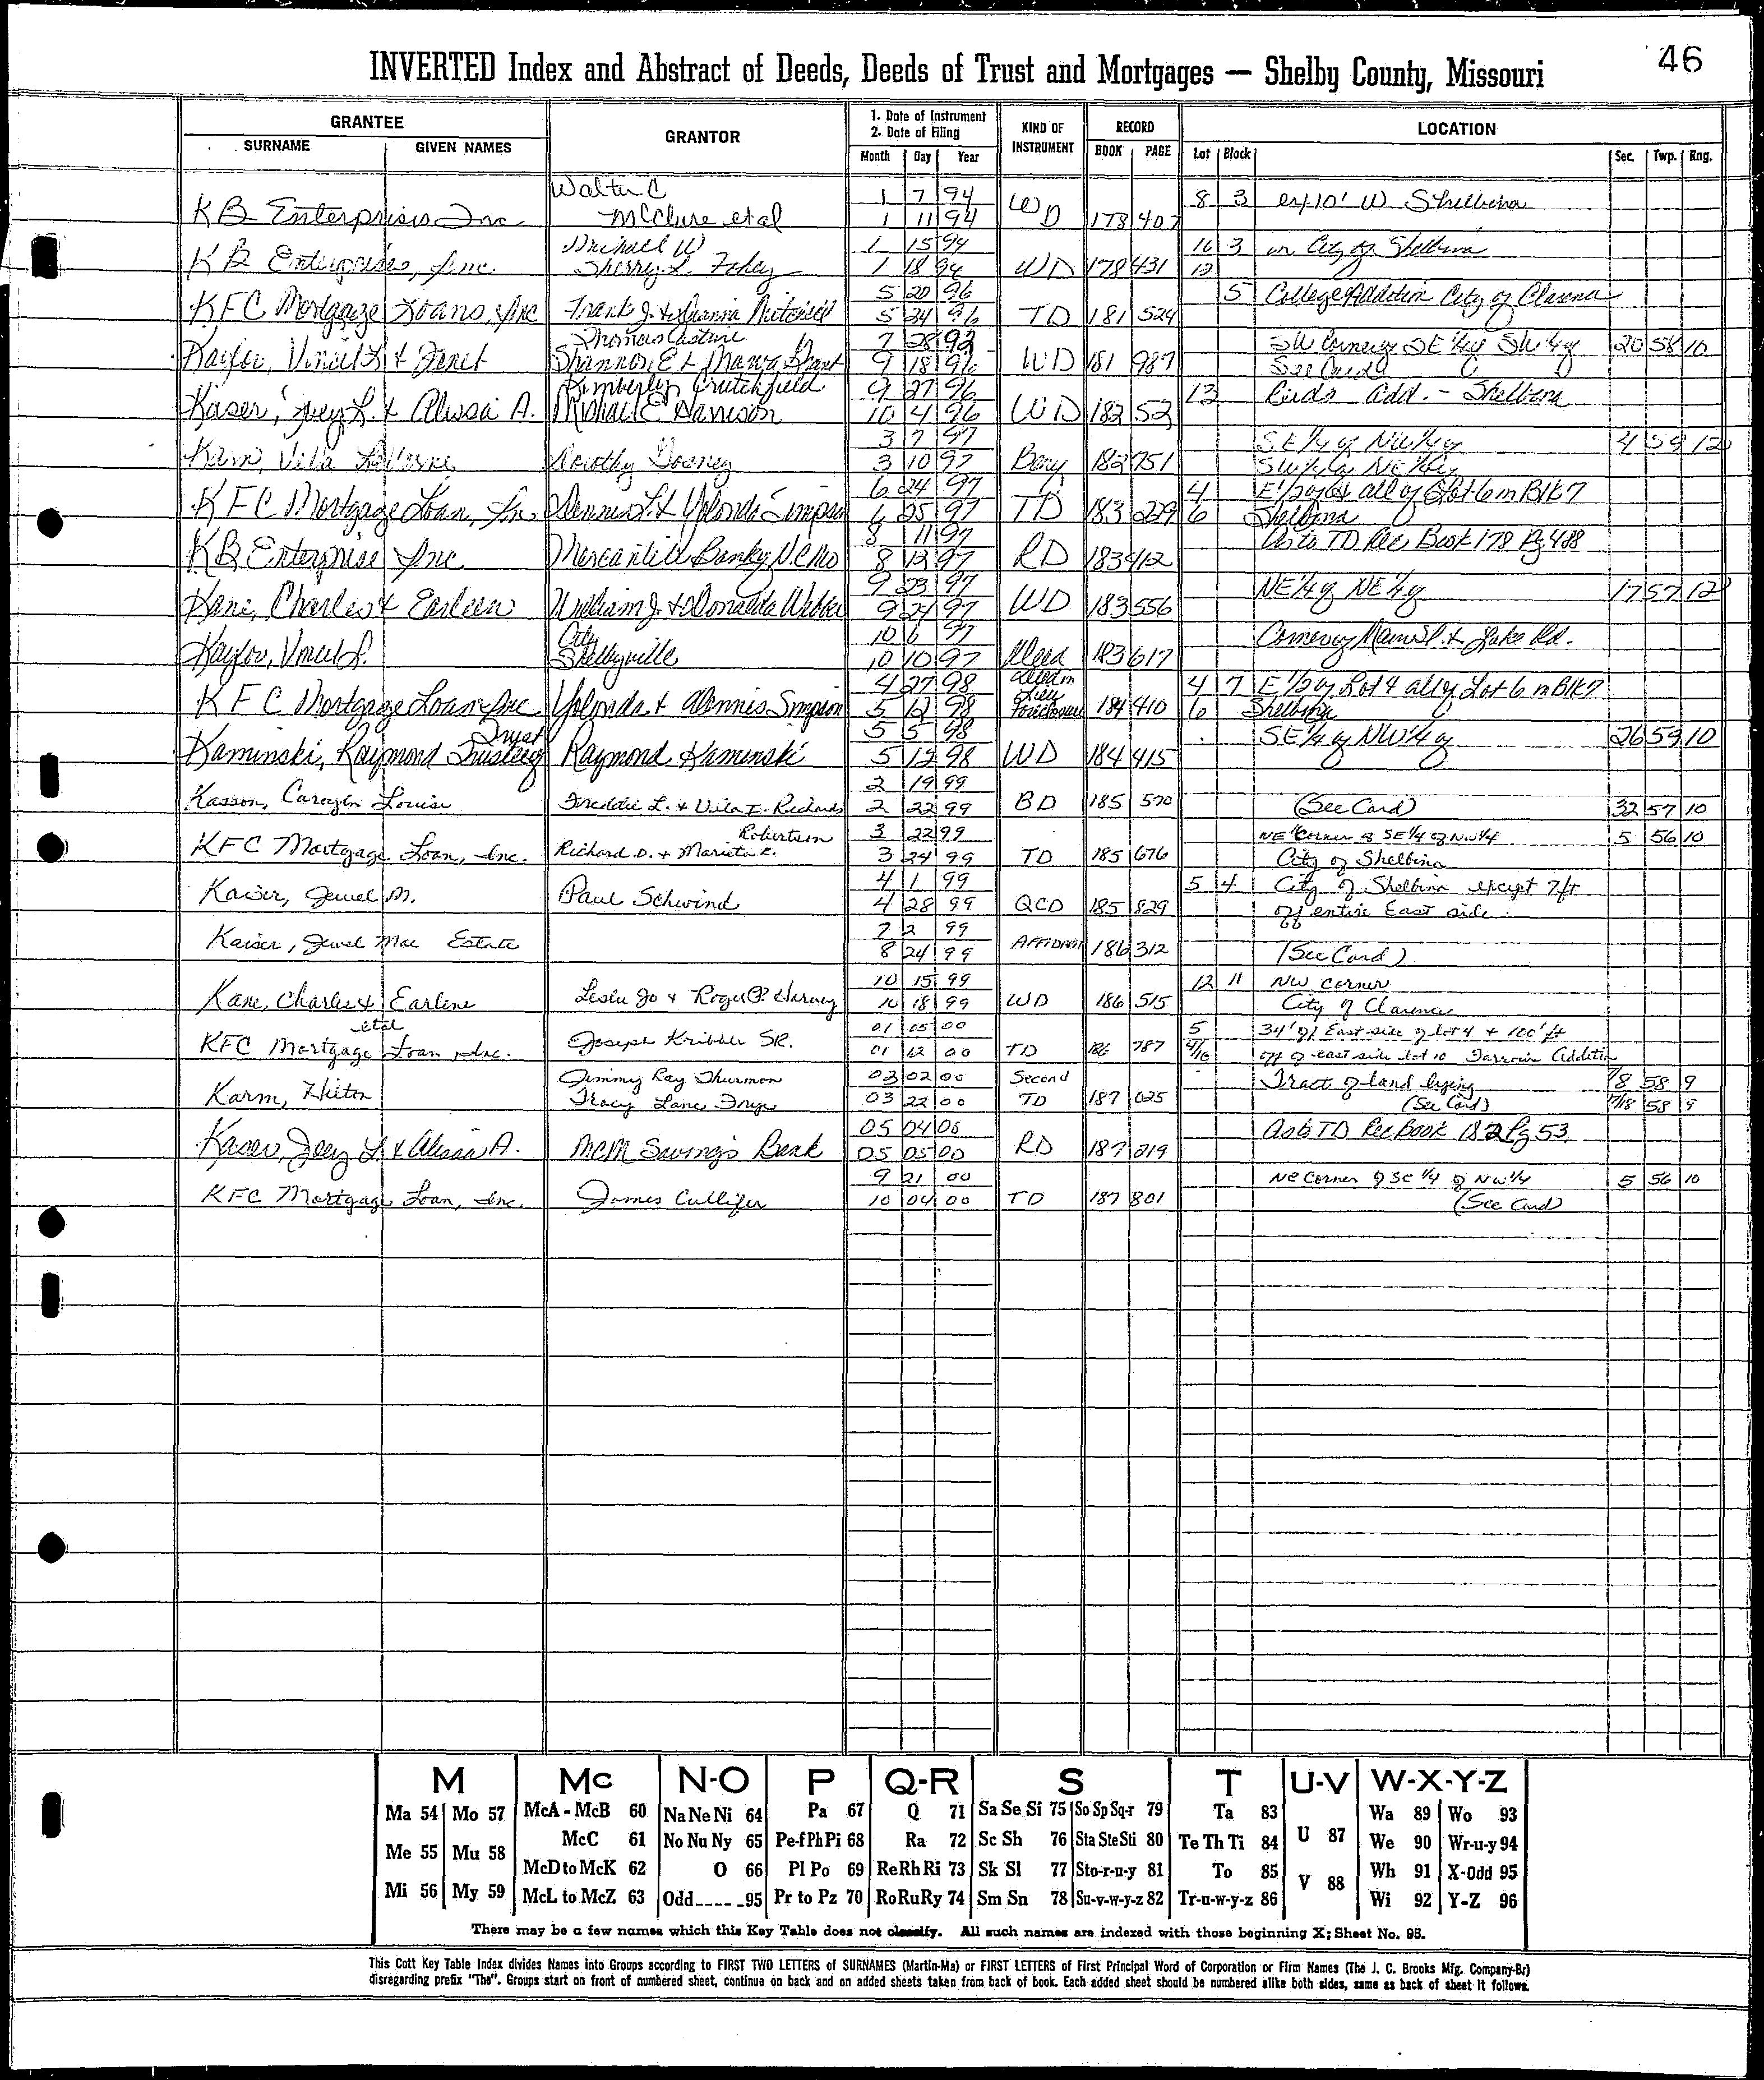 46
INVERTED Index and Abstract of Deeds, Deeds of Trust and Mortgages — Shelby County, Missouri
GRANTEE
SURNAME GIVEN NAMES
GRANTOR
1. Date of Instrument
2. Date of Filing
Month Day Year
KIND OF INSTRUMENT
RECORD
BOOK PAGE
LOCATION
Lot Block Sec. Twp. Rng.
Walter C 1 7 94 8 3 W Shelbina
KB Enterprises Inc McClure et al 1 11 94 WD 178 407
Michael W 1 15 94 16 3 in City of Shelbina
KB Enterprises, Inc. Sherry L. 1 18 94 WD 178 431 12
5 20 96 5 College Addition City of Clarence
KFC Mortgage Loans, Inc Frank J. & 5 24 96 TD 181 524
Thomas 7 28 92 SW Corner of SE 1/4 of SW 1/4 of 20 58 10
Kaylor, & Janet Shannon E & 9 18 96 WD 181 987 See Card
Kimberly Crutchfield 9 27 96 13 Add. - Shelbina
Kaser, Joey L. & Alissa A. Michael E Harrison 10 4 96 WD 182 52
3 7 97 SE 1/4 of NW 1/4 of 4 59 12
Dorothy 3 10 97 182 751 SW 1/4 of NE 1/4 of
6 24 97 4 E 1/2 of all of Lot 6 in Blk 7
KFC Mortgage Loan, Inc Dennis L. & Yolonda Simpson 6 25 97 TD 183 229 6 Shelbina
8 11 97 As to TD Rec Book 178 Pg 488
KB Enterprise Inc Mercantile Bank of N.C. Mo 8 13 97 RD 183 412
9 23 97 NE 1/4 of NE 1/4 of 17 57 12
Kane, Charles & Earleen William J. & Donalda Webber 9 24 97 WD 183 556
City 10 6 97 Corner of Main St. & Lake Rd.
Kaylor, L. Shelbyville 10 10 97 Deed 183 617
4 27 98 Deed in 4 7 E 1/2 of Lot 4 all of Lot 6 in Blk 7
KFC Mortgage Loan Inc Yolonda & Dennis Simpson 5 12 98 Lieu Foreclosure 184 410 6 Shelbina
Trust 5 5 98 SE 1/4 of NW 1/4 of 26 59 10
Kaminski, Raymond Trustee of Raymond Kaminski 5 12 98 WD 184 415
2 19 99
Kasson, Carolyn Louise Freddie L. & Vila I. Richards 2 22 99 BD 185 570 (See Card) 32 57 10
Robertson 3 22 99 NE Corner of SE 1/4 of NW 1/4 5 56 10
KFC Mortgage Loan, Inc. Richard D. & Marieta K. 3 24 99 TD 185 676 City of Shelbina
4 1 99 5 4 City of Shelbina except 7 ft
Kaiser, Jewel M. Paul Schwind 4 28 99 QCD 185 829 off entire East side
7 2 99
Kaiser, Jewel Mae Estate 8 24 99 Affidavit 186 312 (See Card)
10 15 99 12 11 NW Corner
Kane, Charles & Earlene Leslie Jo & Roger P. Harvey 10 18 99 WD 186 515 City of Clarence
et al 01 05 00 5 34' of East side of lot 4 + 100' ft
KFC Mortgage Loan Inc. Joseph Kribbe SR. 01 12 00 TD 186 787 4/10 off of east side lot 10 Addition
Jimmy Ray Thurmon 03 02 00 Second Tract of land lying 7/8 58 9
Karm, Hilton Tracy Lane Frye 03 22 00 TD 187 025 (See Card) 17/18 58 9
05 04 00 As to TD Rec Book 182 Pg 53
Kaser, Joey L & Alissa A. MCM Savings Bank 05 05 00 RD 187 219
9 21 00 NE Corner of SE 1/4 of NW 1/4 5 56 10
KFC Mortgage Loan, Inc. James Cullifer 10 04 00 TD 187 801 (See Card)
M Mc N-O P Q-R S T U-V W-X-Y-Z
Ma 54 Mo 57 McA - McB 60 Na Ne Ni 64 Pa 67 Q 71 Sa Se Si 75 So Sp Sq-r 79 Ta 83 U 87 Wa 89 Wo 93
Me 55 Mu 58 McC 61 No Nu Ny 65 Pe-f Ph Pi 68 Ra 72 Sc Sh 76 Sta Ste Sti 80 Te Th Ti 84 We 90 Wr-u-y 94
McD to McK 62 O 66 Pl Po 69 Re Rh Ri 73 Sk Sl 77 Sto-r-u-y 81 To 85 V 88 Wh 91 X-Odd 95
Mi 56 My 59 McL to McZ 63 Odd---- -95 Pr to Pz 70 Ro Ru Ry 74 Sm Sn 78 Su-v-w-y-z 82 Tr-u-w-y-z 86 Wi 92 Y-Z 96
There may be a few names which this Key Table does not classify. All such names are indexed with those beginning X; Sheet No. 95.
This Cott Key Table Index divides Names into Groups according to FIRST TWO LETTERS of SURNAMES (Martin-Ma) or FIRST LETTERS of First Principal Word of Corporation or Firm Names (The J. C. Brooks Mfg. Company-Br)
disregarding prefix "The". Groups start on front of numbered sheet, continue on back and on added sheets taken from back of book. Each added sheet should be numbered alike both sides, same as back of sheet it follows.